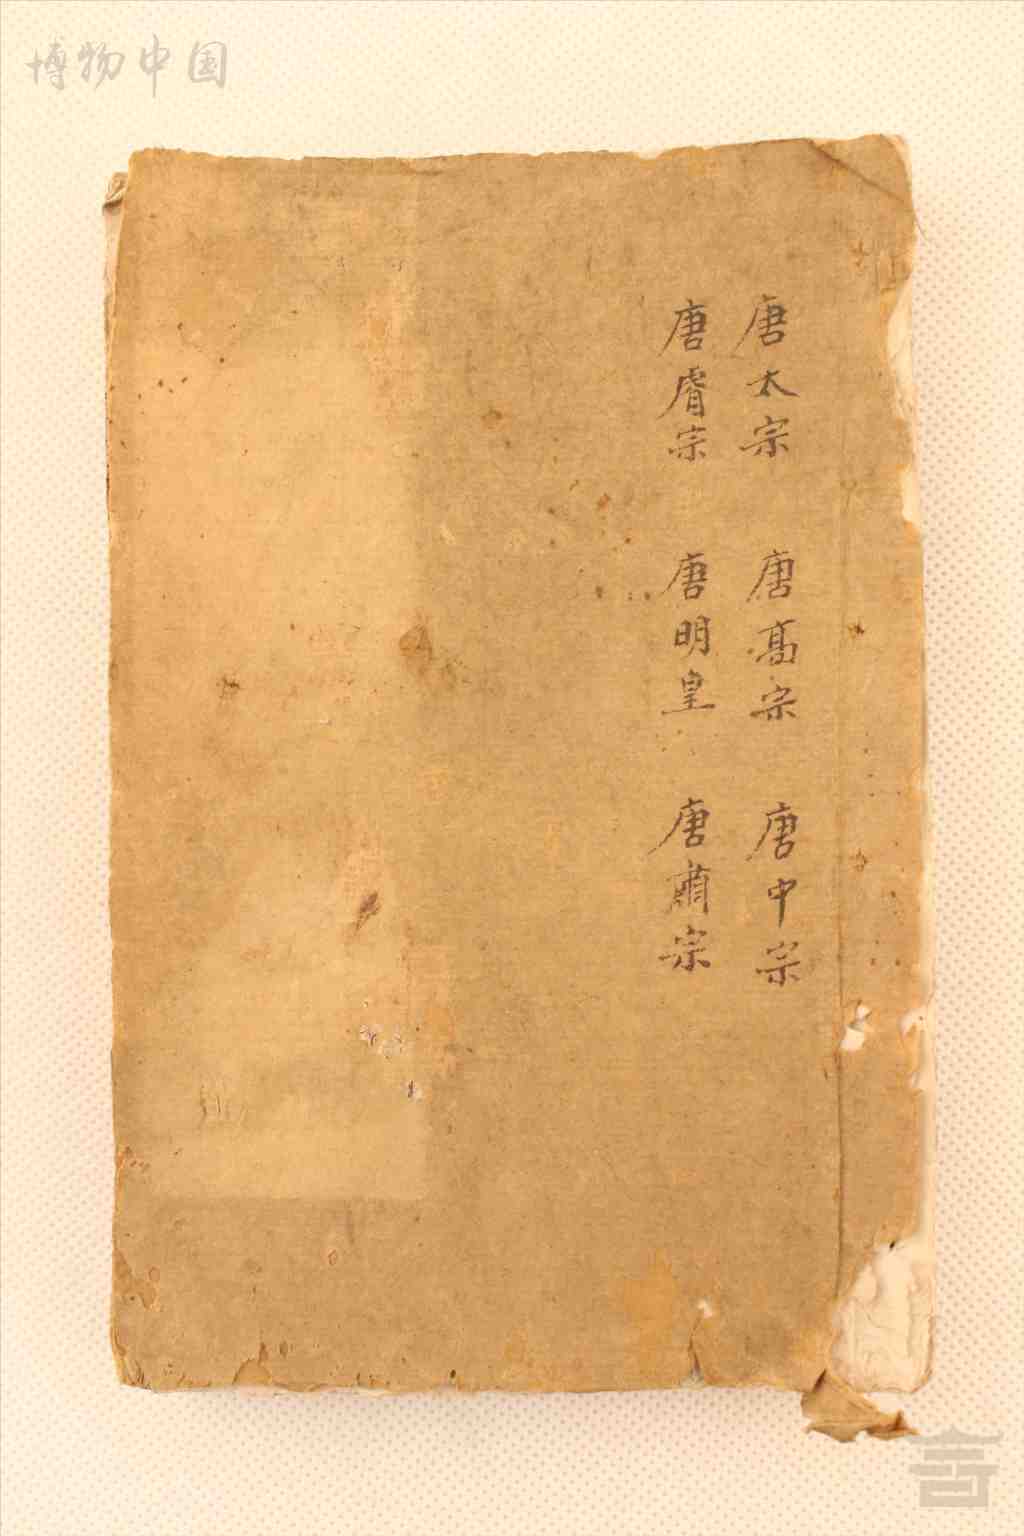 博物中国
唐太宗 唐高宗 唐中宗
唐睿宗 唐明皇 唐肅宗